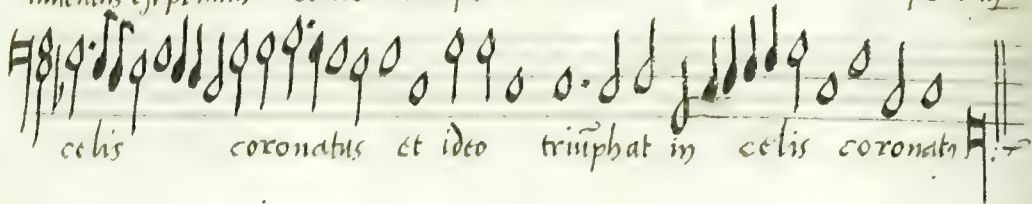 celis coronatus et ideo triūphat in celis coronatꝰ